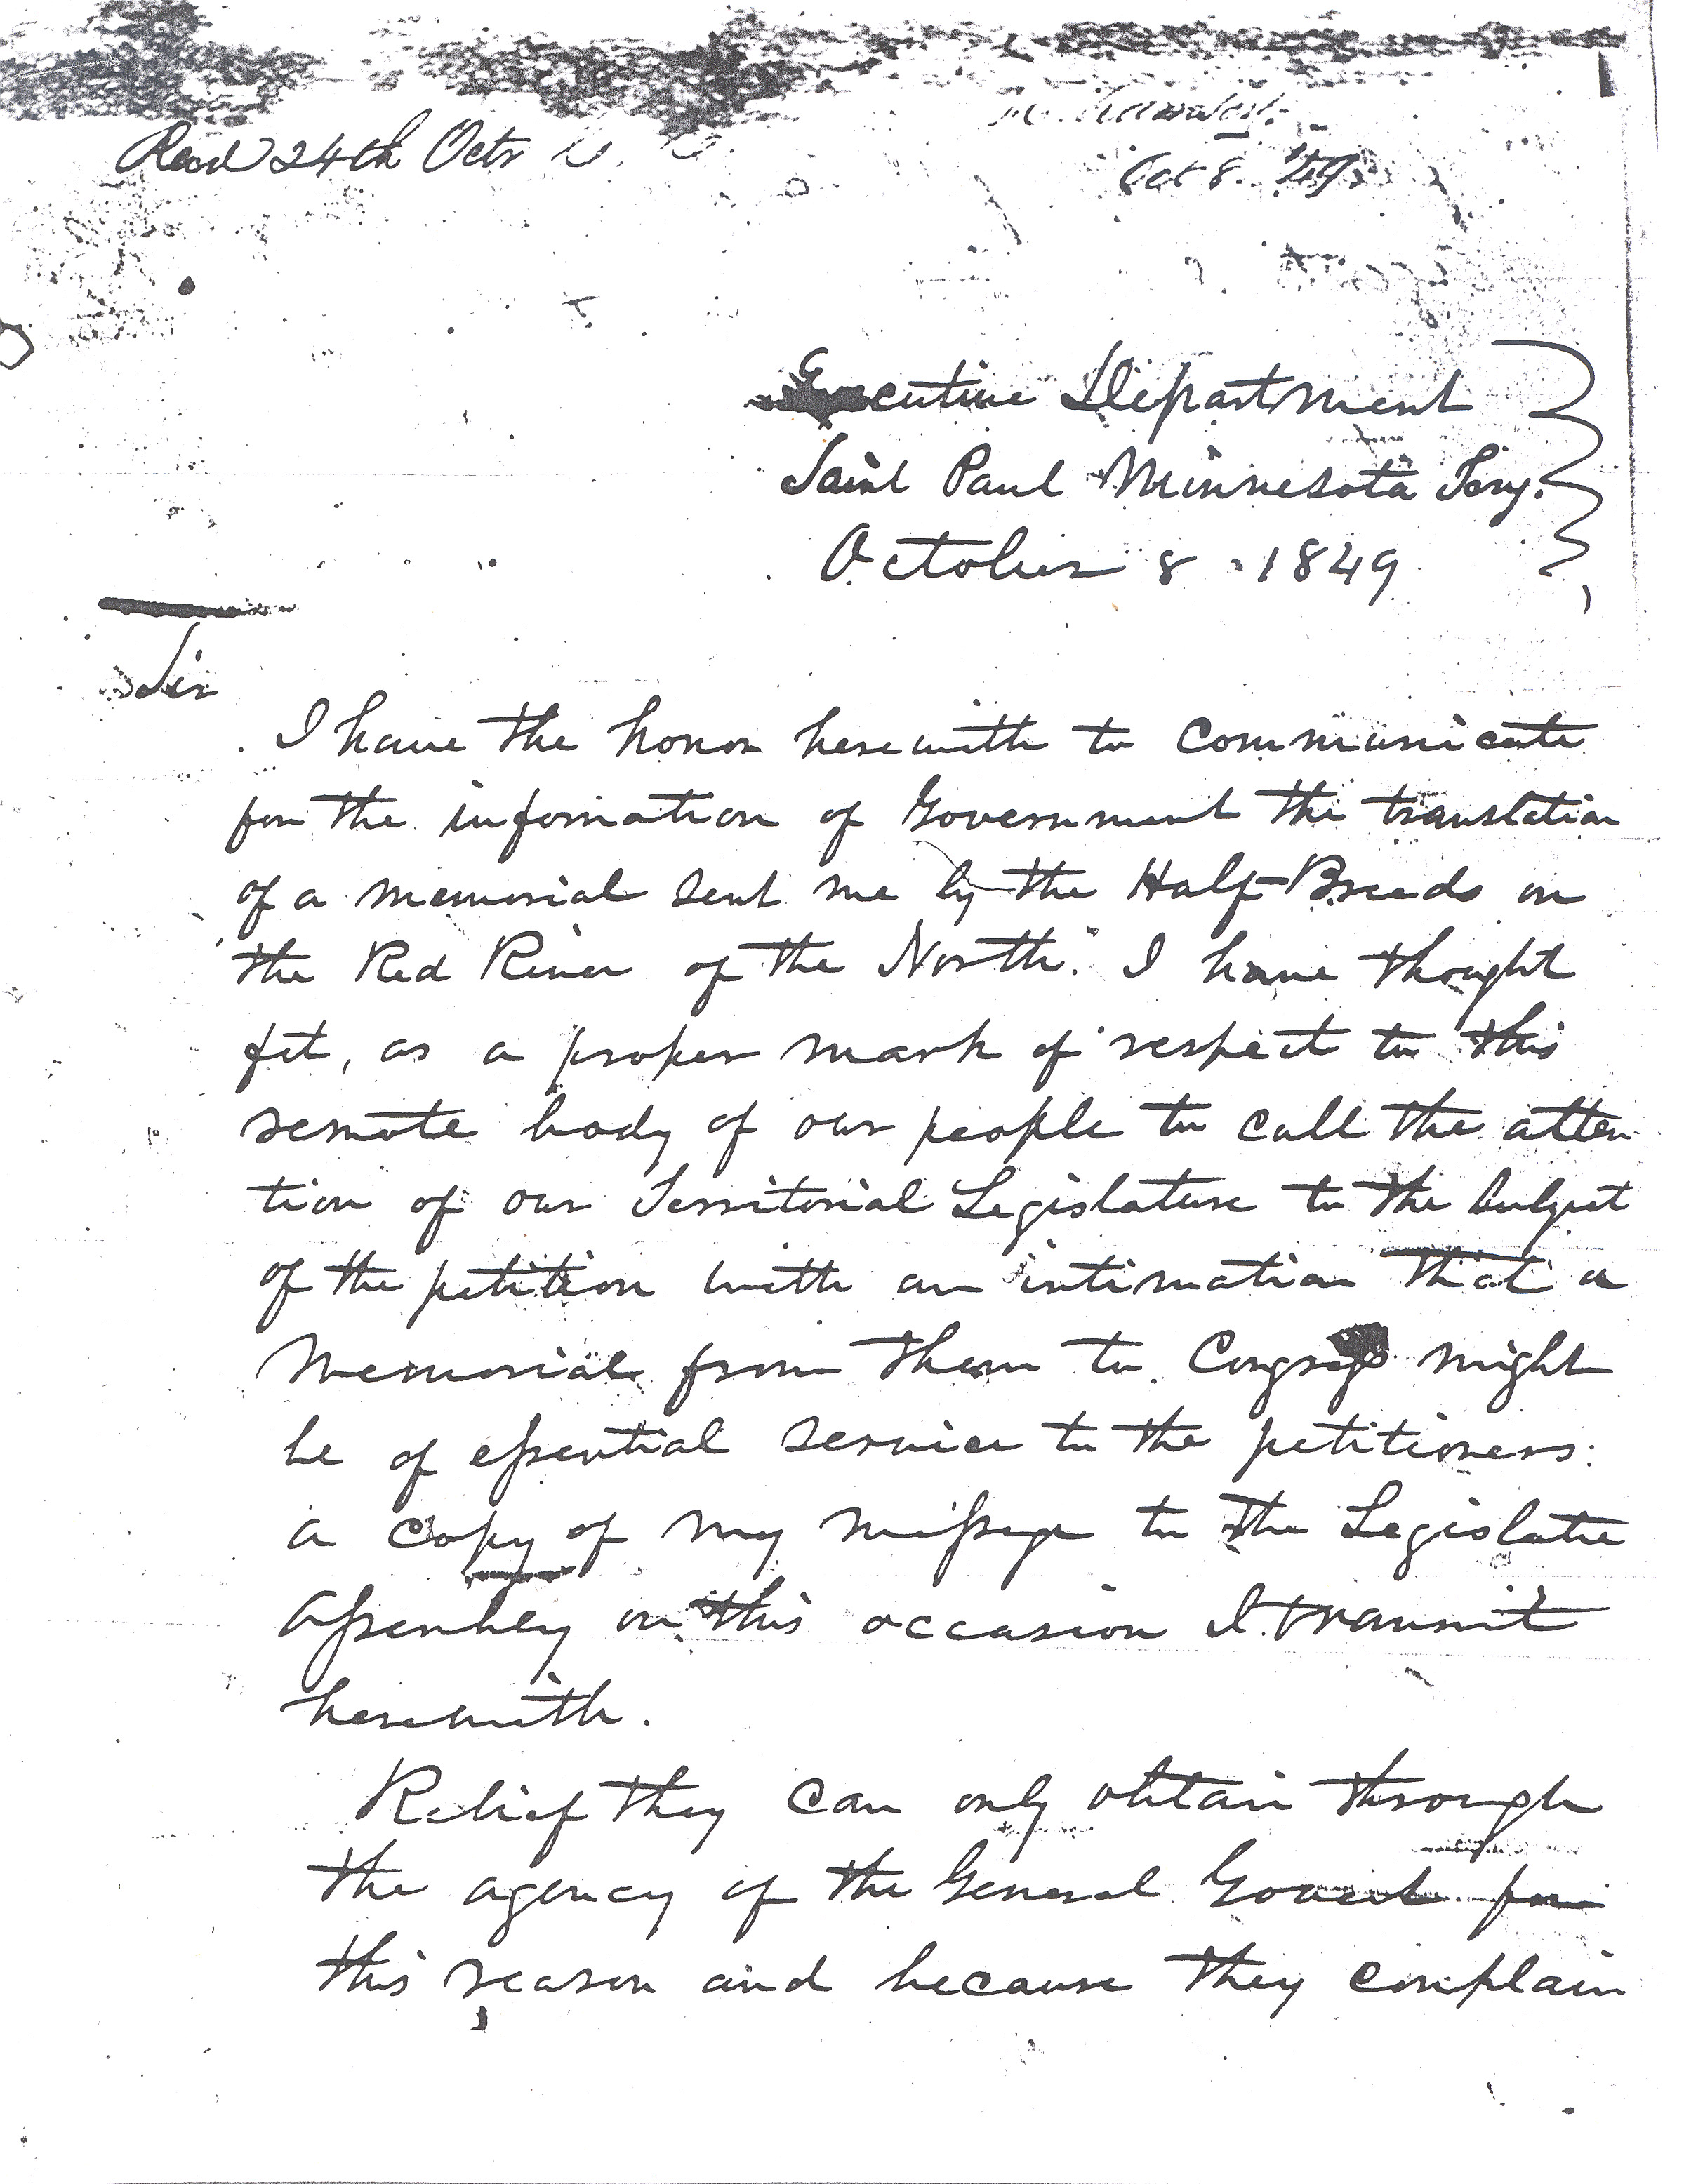 Recd 24th Octr
Oct 8. '49.
Executive Department
Saint Paul Minnesota Tery.
October 8. 1849
Sir
I have the honor herewith to communicate
for the information of Government the translation
of a memorial sent me by the Half-Breeds on
the Red River of the North. I have thought
fit, as a proper mark of respect to this
remote body of our people to call the atten
tion of our Territorial Legislature to the subject
of the petition with an intimation that a
memorial from them to Congress might
be of essential service to the petitioners:
a copy of my message to the Legislative
Assembly on this occasion I transmit
herewith.
Relief they can only obtain through
the agency of the General Govert for
this reason and because they complain